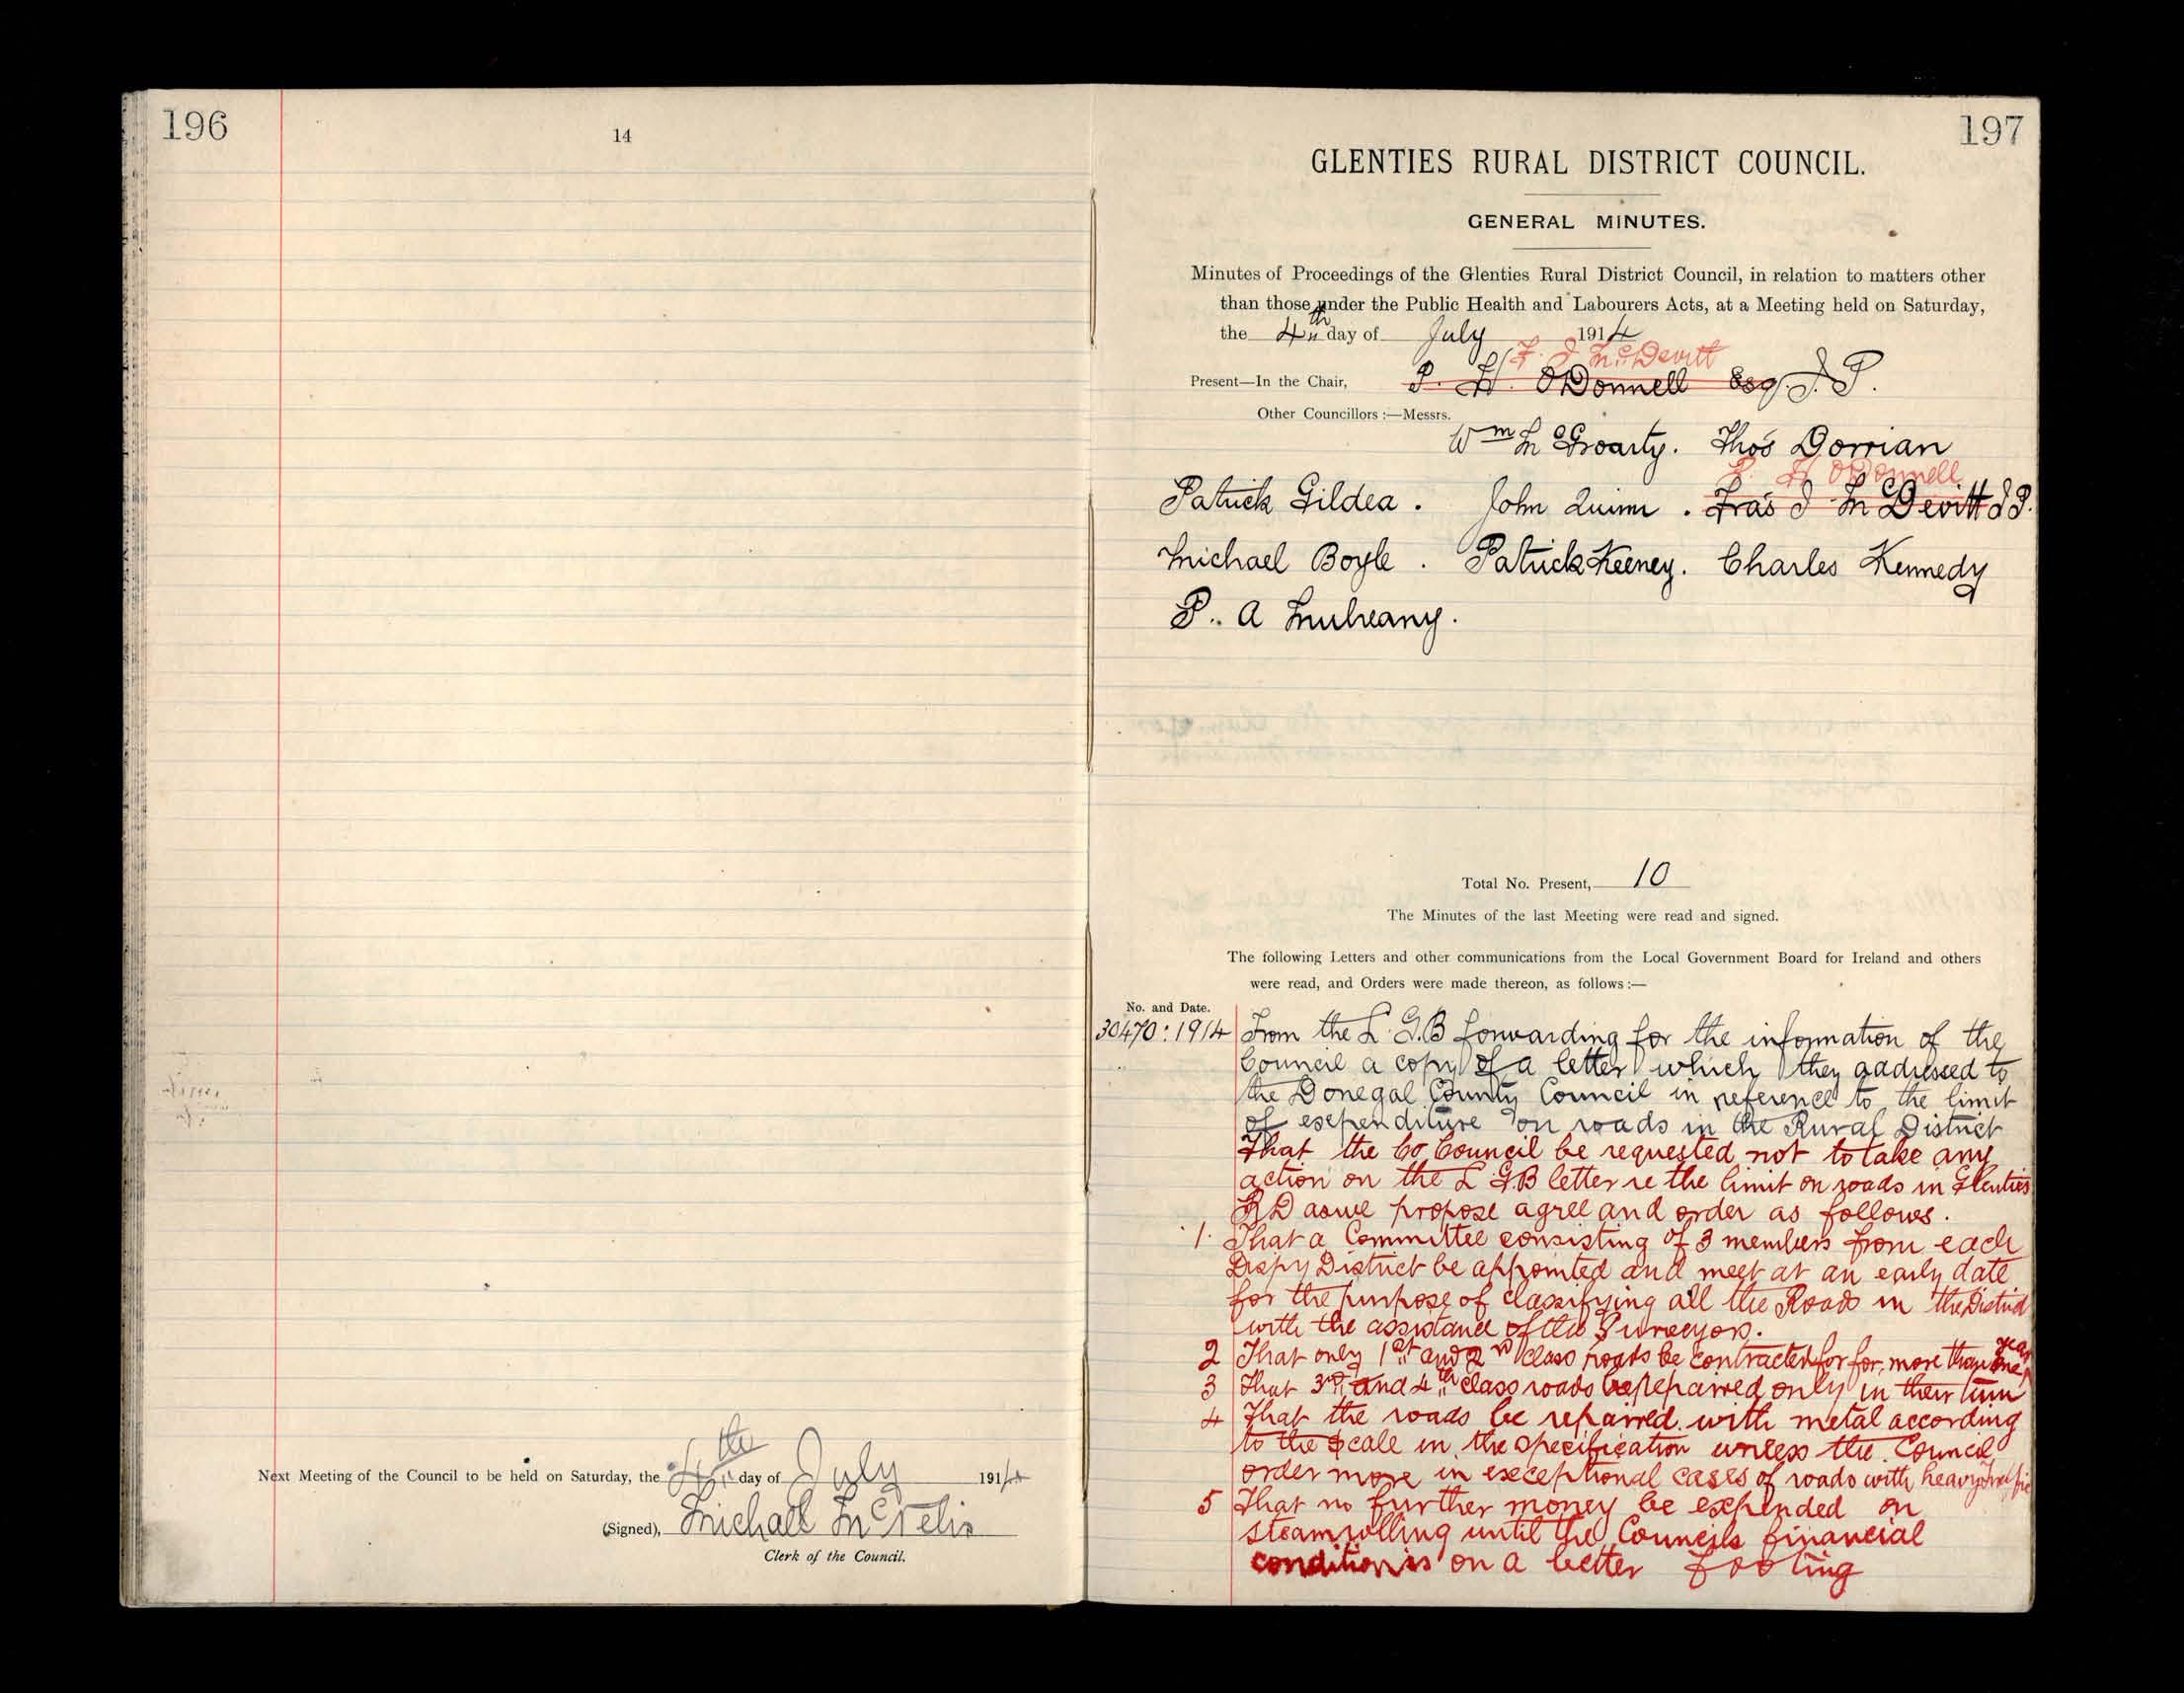 196
14
Next Meeting of the Council to be held on Saturday, the 4th day of July 1914
(Signed), Michael McNelis
Clerk of the Council.
197
GLENTIES RURAL DISTRICT COUNCIL.
GENERAL MINUTES.
Minutes of Proceedings of the Glenties Rural District Council, in relation to matters other
than those under the Public Health and Labourers Acts, at a Meeting held on Saturday,
the 4th day of July 1914
F. J McDevitt
Present—In the Chair, P. H. O'Donnell Esq J. P.
Other Councillors:—Messrs.
Wm McGroarty. Thos Dorrian
P. H O'Donnell
Patrick Gildea. John Quinn. Fras J McDevitt J P.
Michael Boyle. Patrick Keeney. Charles Kennedy
P. A Mulreany.
Total No. Present, 10
The Minutes of the last Meeting were read and signed.
The following Letters and other communications from the Local Government Board for Ireland and others
were read, and Orders were made thereon, as follows:—
No. and Date.
30470: 1914 From the L. G.B forwarding for the information of the
Council a copy of a letter which they addressed to
the Donegal County Council in reference to the limit
of expenditure on roads in the Rural District
That the Co Council be requested not to take any
action on the L.G.B letter re the limit on roads in Glenties
R D as we propose agree and order as follows.
1. That a Committee consisting of 3 members from each
Dispy District be appointed and meet at an early date
for the purpose of classifying all the Roads in the District
with the assistance of the Surveyors.
2 That only 1st and 2nd class roads be contracted for for more than one year
3 That 3rd and 4th class roads be repaired only in their turn
4 That the roads be repaired with metal according
to the scale in the specification unless the Council
order more in exceptional cases of roads with heavy traffic
5 That no further money be expended on
steamrolling until the Councils financial
condition is on a better footing